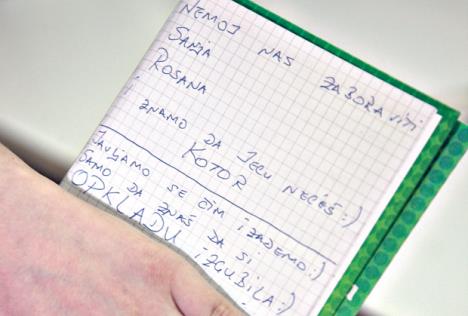 NEMOJ NAS ZABORAVITI
SANJA
ROSANA
I ZNAMO DA JECU NEĆEŠ :)
KOTOR
JAVLJAMO SE ČIM IZAĐEMO :)
SAMO DA ZNAŠ DA SI
OPKLADU IZGUBILA :)